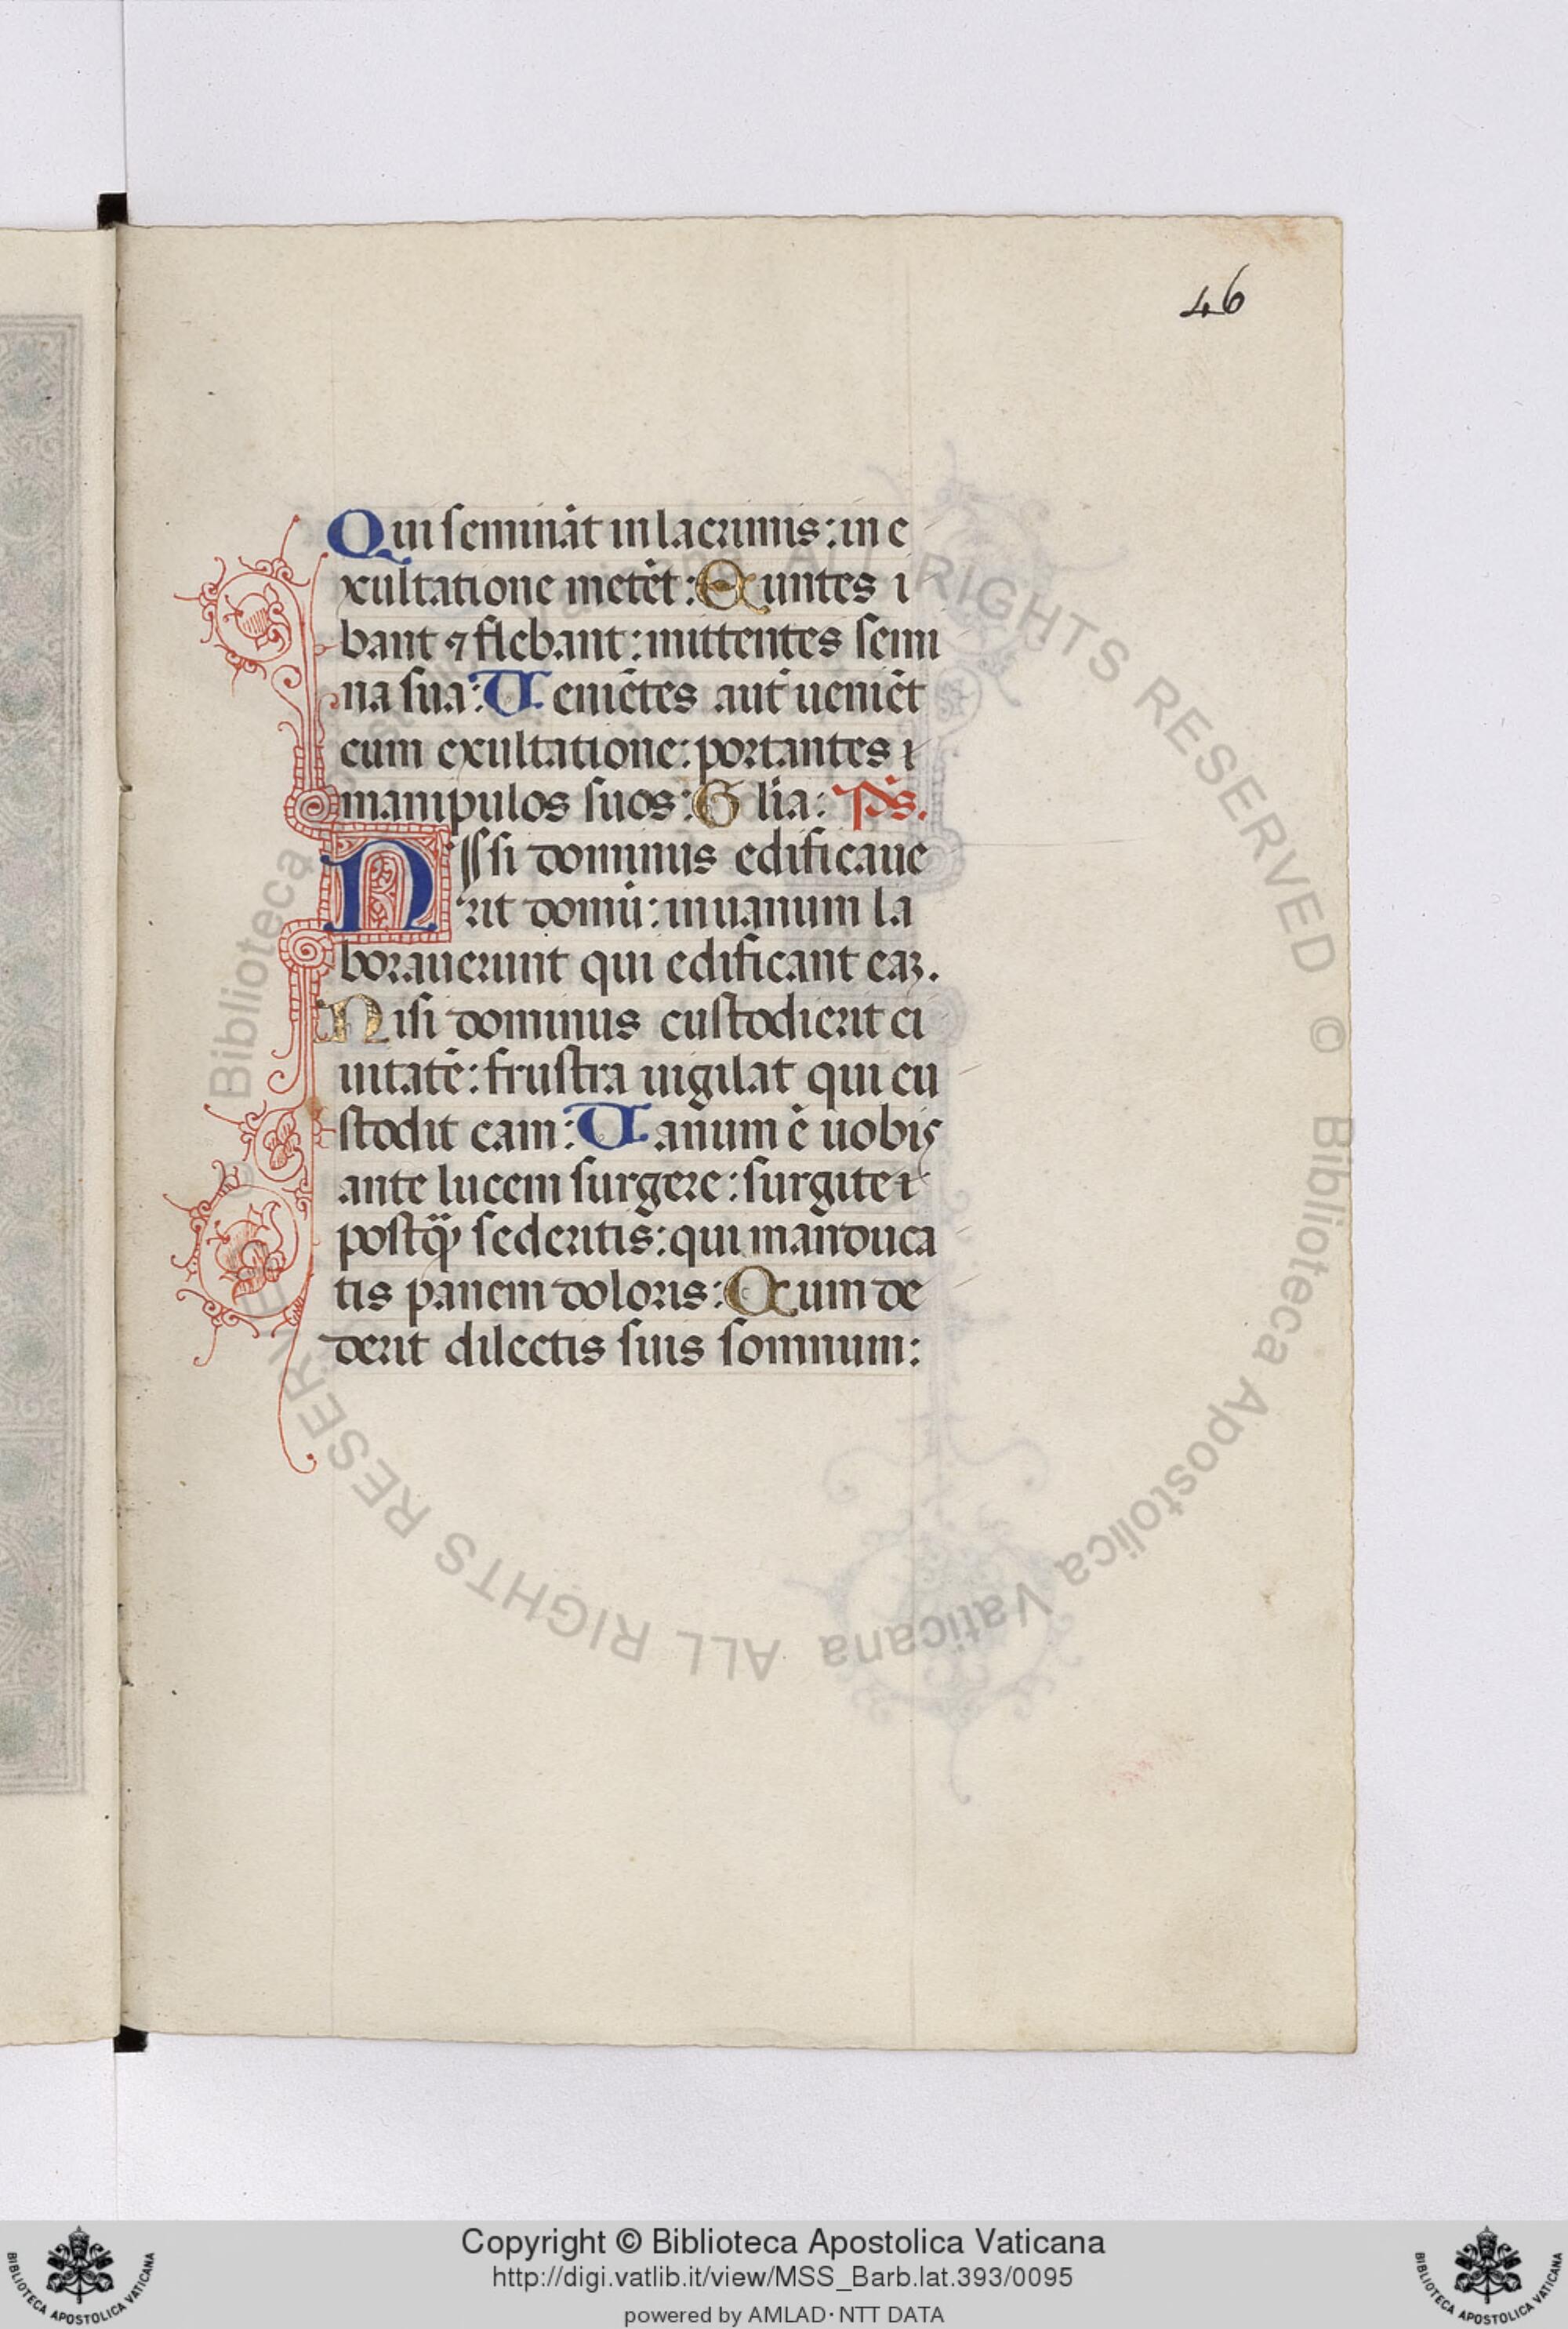 46
Qui seminãt in lacrimis: in e
xultatione metẽt: Euntes i
bant ⁊ flebant: mittentes semi
na sua: Veniẽtes aut̃ ueniẽt
cum exultatione: portantes
manipulos suos: Gl̃ia: Ps̃.
Nisi dominus edificaue
rit domũ: in uanum la
borauerunt qui edificant eaꝫ.
Nisi dominus custodierit ci
uitatẽ: frustra uigilat qui cu
stodit eam: Vanum ẽ uobis
ante lucem surgere: surgite
postq̃ sederitis: qui manduca
tis panem doloris: Cum de
derit dilectis suis somnum:
© Biblioteca Apostolica Vaticana ALL RIGHTS RESERVED
© Biblioteca Apostolica Vaticana ALL RIGHTS RESERVED
Copyright © Biblioteca Apostolica Vaticana
http://digi.vatlib.it/view/MSS_Barb.lat.393/0095
powered by AMLAD·NTT DATA
BIBLIOTECA APOSTOLICA VATICANA
BIBLIOTECA APOSTOLICA VATICANA